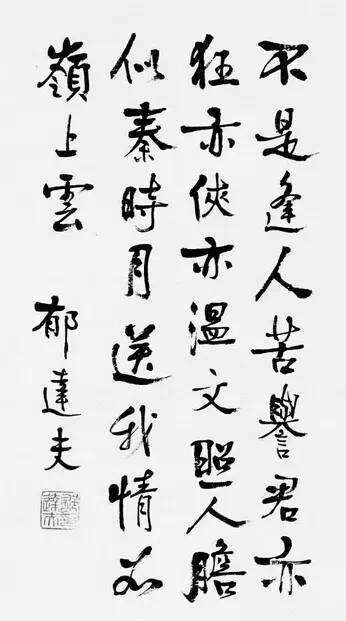 不是逢人苦譽君亦
狂亦俠亦溫文照人膽
似秦時月送我情如
嶺上雲
郁達夫